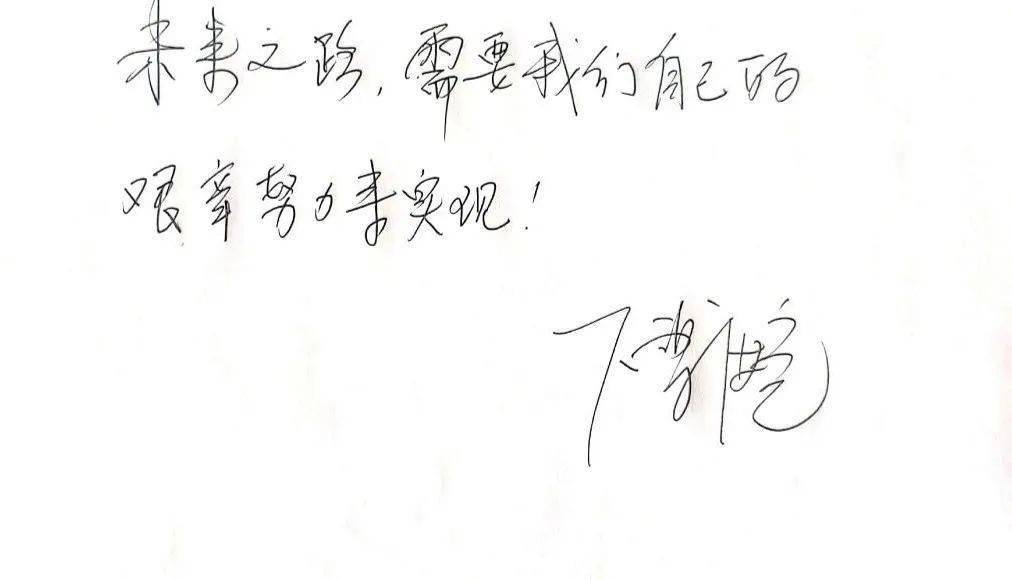 未来之路，需要我们自己的
艰辛努力来实现！